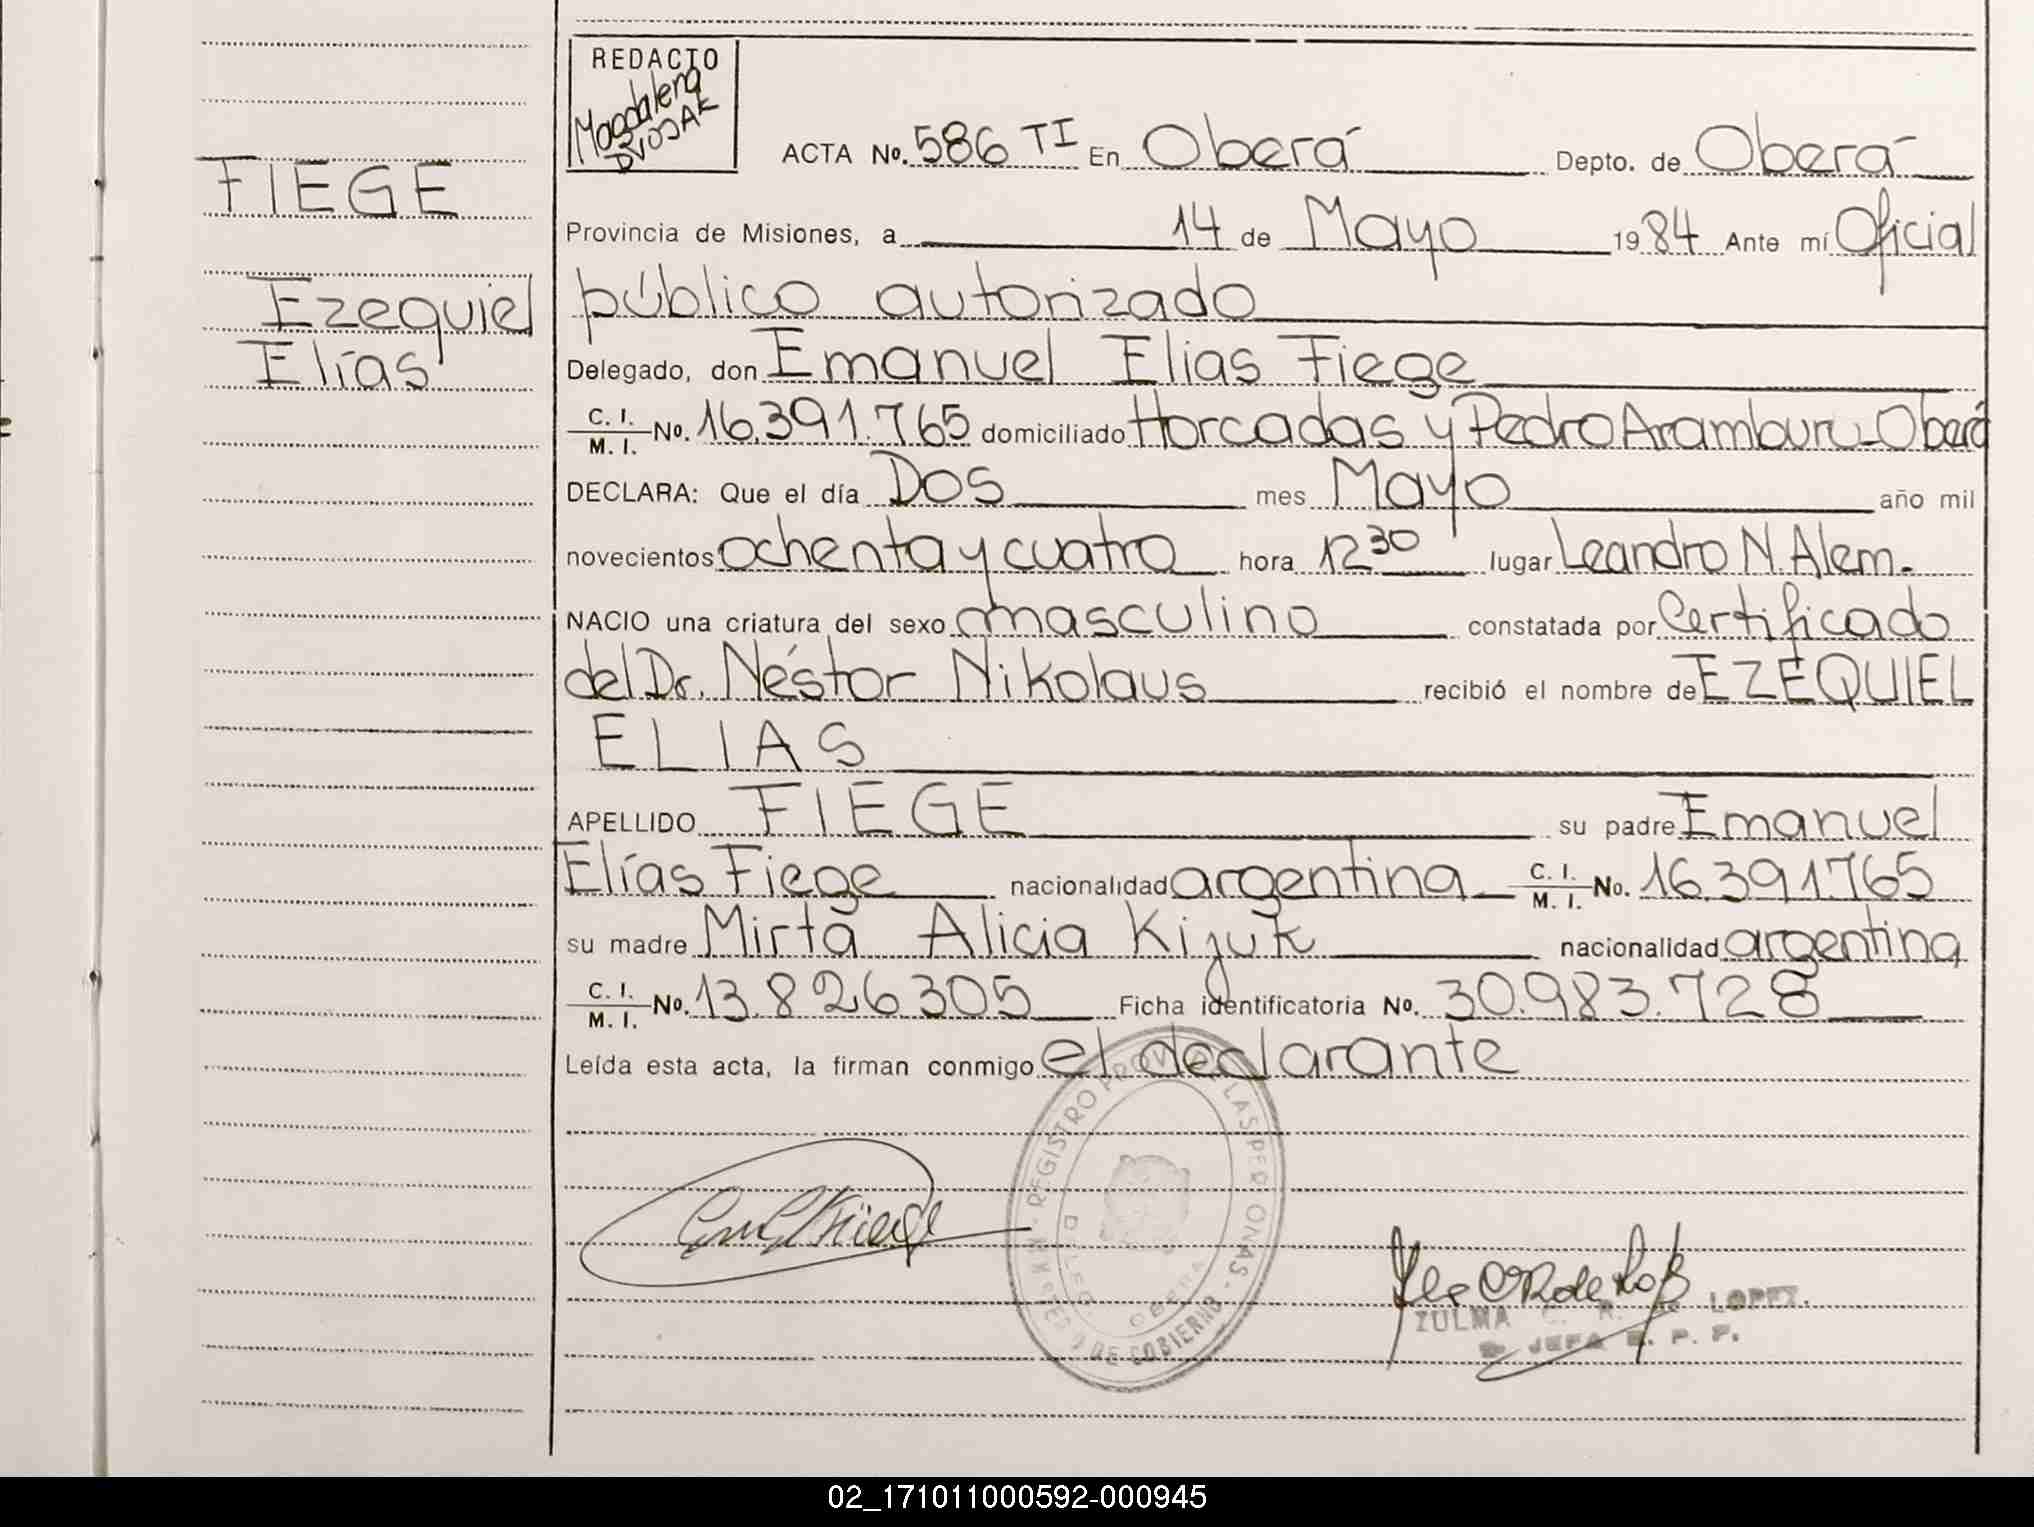 REDACTO
Magdalena
DVOJAK
FIEGE
Ezequiel
Elías
ACTA No. 586 TI En Oberá Depto. de Oberá
Provincia de Misiones, a 14 de Mayo 1984 Ante mí Oficial
público autorizado
Delegado, don Emanuel Elias Fiege
C. I. / M. I. No. 16.391.765 domiciliado Horcadas y Pedro Aramburu-Oberá
DECLARA: Que el día Dos mes Mayo año mil
novecientos ochenta y cuatro hora 12 30 lugar Leandro N. Alem.
NACIO una criatura del sexo masculino constatada por Certificado
del Dr. Néstor Nikolaus recibió el nombre de EZEQUIEL
ELIAS
APELLIDO FIEGE su padre Emanuel
Elías Fiege nacionalidad argentina C. I. / M. I. No. 16.391.765
su madre Mirta Alicia Kijuk nacionalidad argentina
C. I. / M. I. No. 13.826.305 Ficha identificatoria No. 30.983.728
Leída esta acta, la firman conmigo el declarante
REGISTRO PROV. DE LAS PERSONAS
DE GOBIERNO
OBERA
ZULMA C. R. de LOPEZ.
JEFA E. P. P.
02_171011000592-000945